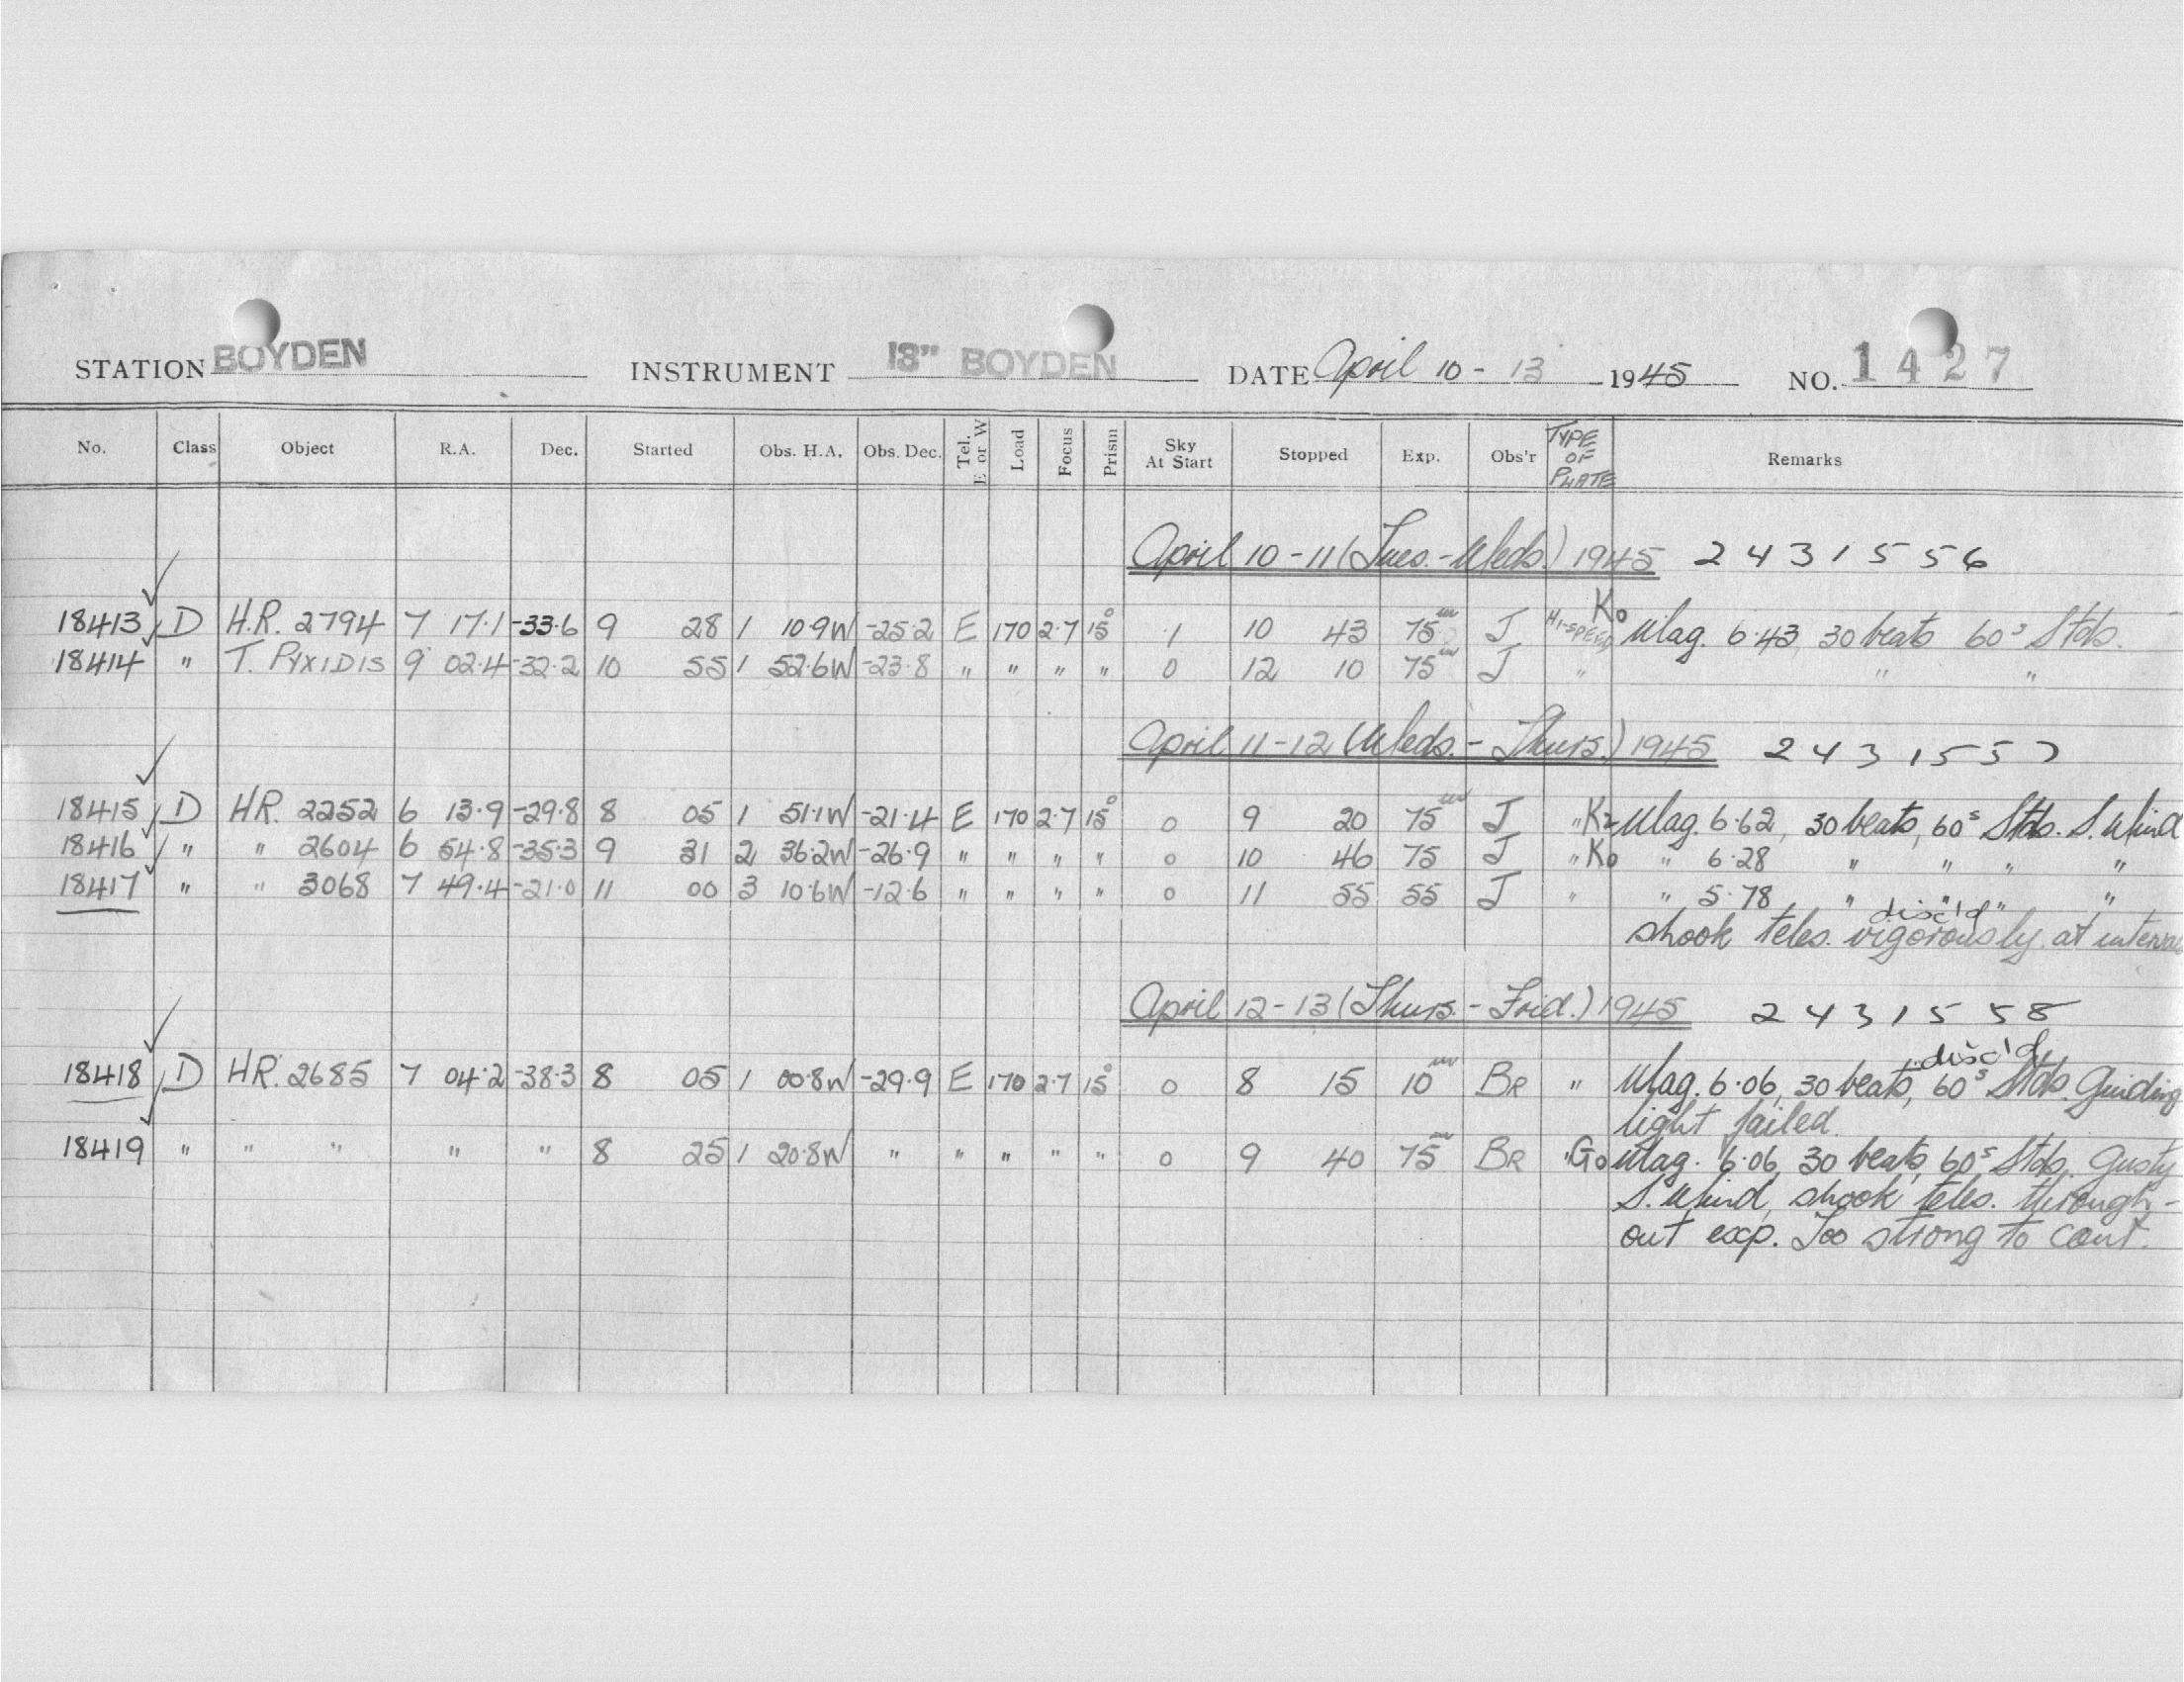 STATION BOYDEN INSTRUMENT 13" BOYDEN DATE April 10 - 13 1945 NO. 1427
No. Class Object R.A. Dec. Started Obs. H.A. Obs. Dec. Tel. E or W Load Focus Prism Sky At Start Stopped Exp. Obs'r TYPE OF PLATE Remarks
April 10-11 (Tues.-Weds.) 1945 2431556
18413 D H.R. 2794 7 17.1 -33.6 9 28 1 10.9W -25.2 E 170 2.7 15° 1 10 43 75m J HI-SPEED K0 Mag. 6.43, 30 beats 60s Stds.
18414 " T. PYXIDIS 9 02.4 -32.2 10 55 1 52.6W -23.8 " " " " 0 12 10 75m J " " "
April 11-12 (Weds.-Thurs.) 1945 2431557
18415 D HR. 2252 6 13.9 -29.8 8 05 1 51.1W -21.4 E 170 2.7 15° 0 9 20 75m J " K2 Mag. 6.62, 30 beats, 60s Stds. S. Wind
18416 " " 2604 6 54.8 -35.3 9 31 2 36.2W -26.9 " " " " 0 10 46 75 J " K0 " 6.28 " " " "
18417 " " 3068 7 49.4 -21.0 11 00 3 10.6W -12.6 " " " " 0 11 55 55 J " " 5.78 " " " "
disc'd
shook teles. vigorously at
April 12-13 (Thurs.-Frid.) 1945 2431558
disc'd
18418 D HR. 2685 7 04.2 -38.3 8 05 1 00.8W -29.9 E 170 2.7 15° 0 8 15 10m BR " Mag. 6.06, 30 beats, 60s Stds. Guiding
light failed.
18419 " " " " " 8 25 1 20.8W " " " " " 0 9 40 75m BR " G0 Mag. 6.06, 30 beats, 60s Stds. Gusty
S. Wind, shook teles. through-
out exp. Too strong to cont.